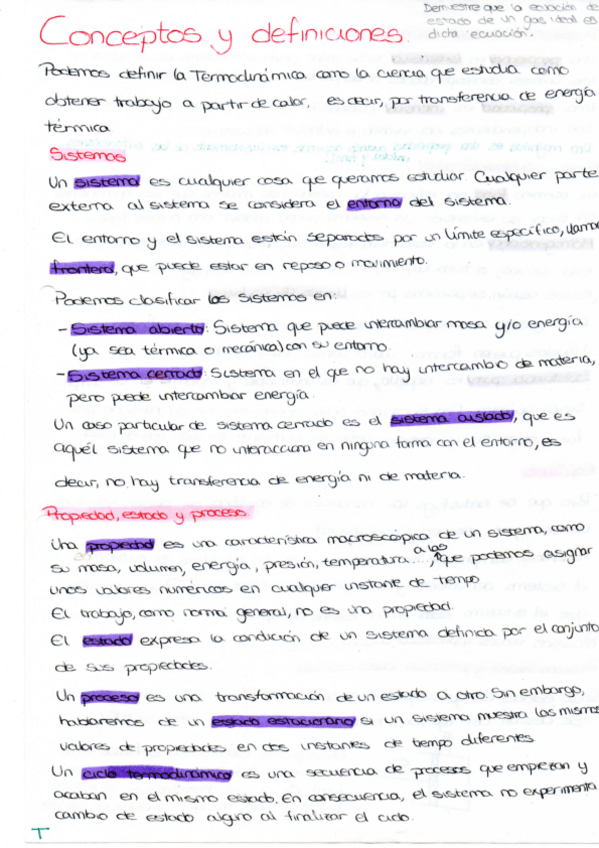 Demuestre que la ecuación de
estado de un gas ideal es
dicha ecuación.
Conceptos y definiciones.
Podemos definir la Termodinámica como la ciencia que estudia como
obtener trabajo a partir de calor, es decir, por transferencia de energía
térmica
Sistemas
Un sistema es cualquier cosa que queramos estudiar Cualquier parte
externa al sistema se considera el entorno del sistema.
El entorno y el sistema están separados por un límite específico, llamar
frontera, que puede estar en reposo o movimiento.
Podemos clasificar los sistemas en:
- Sistema abierto: Sistema que puede intercambiar masa y/o energía
(ya sea térmica o mecánica) con su entorno.
- Sistema cerrado: Sistema en el que no hay intercambio de materia,
pero puede intercambiar energía.
Un caso particular de sistema cerrado es el sistema aislado, que es
aquél sistema que no interacciona en ninguna forma con el entorno, es
decir, no hay transferencia de energía ni de materia.
Propiedad, estado y proceso
Una propiedad es una característica macroscópica de un sistema, como
su masa, volumen, energía, presión, temperatura...., a los que podemos asignar
unos valores numéricos en cualquier instante de tiempo
El trabajo, como norma general, no es una propiedad
El estado expresa la condición de un sistema definida por el conjunto
de sus propiedades.
Un proceso es una transformación de un estado a otro. Sin embargo,
hablaremos de un estado estacionario si un sistema muestra los mismos
valores de propiedades en dos instantes de tiempo diferentes
Un ciclo termodinámico es una secuencia de procesos que empiezan y
acaban en el mismo estado. En consecuencia, el sistema no experimenta
cambio de estado alguno al finalizar el ciclo.
T